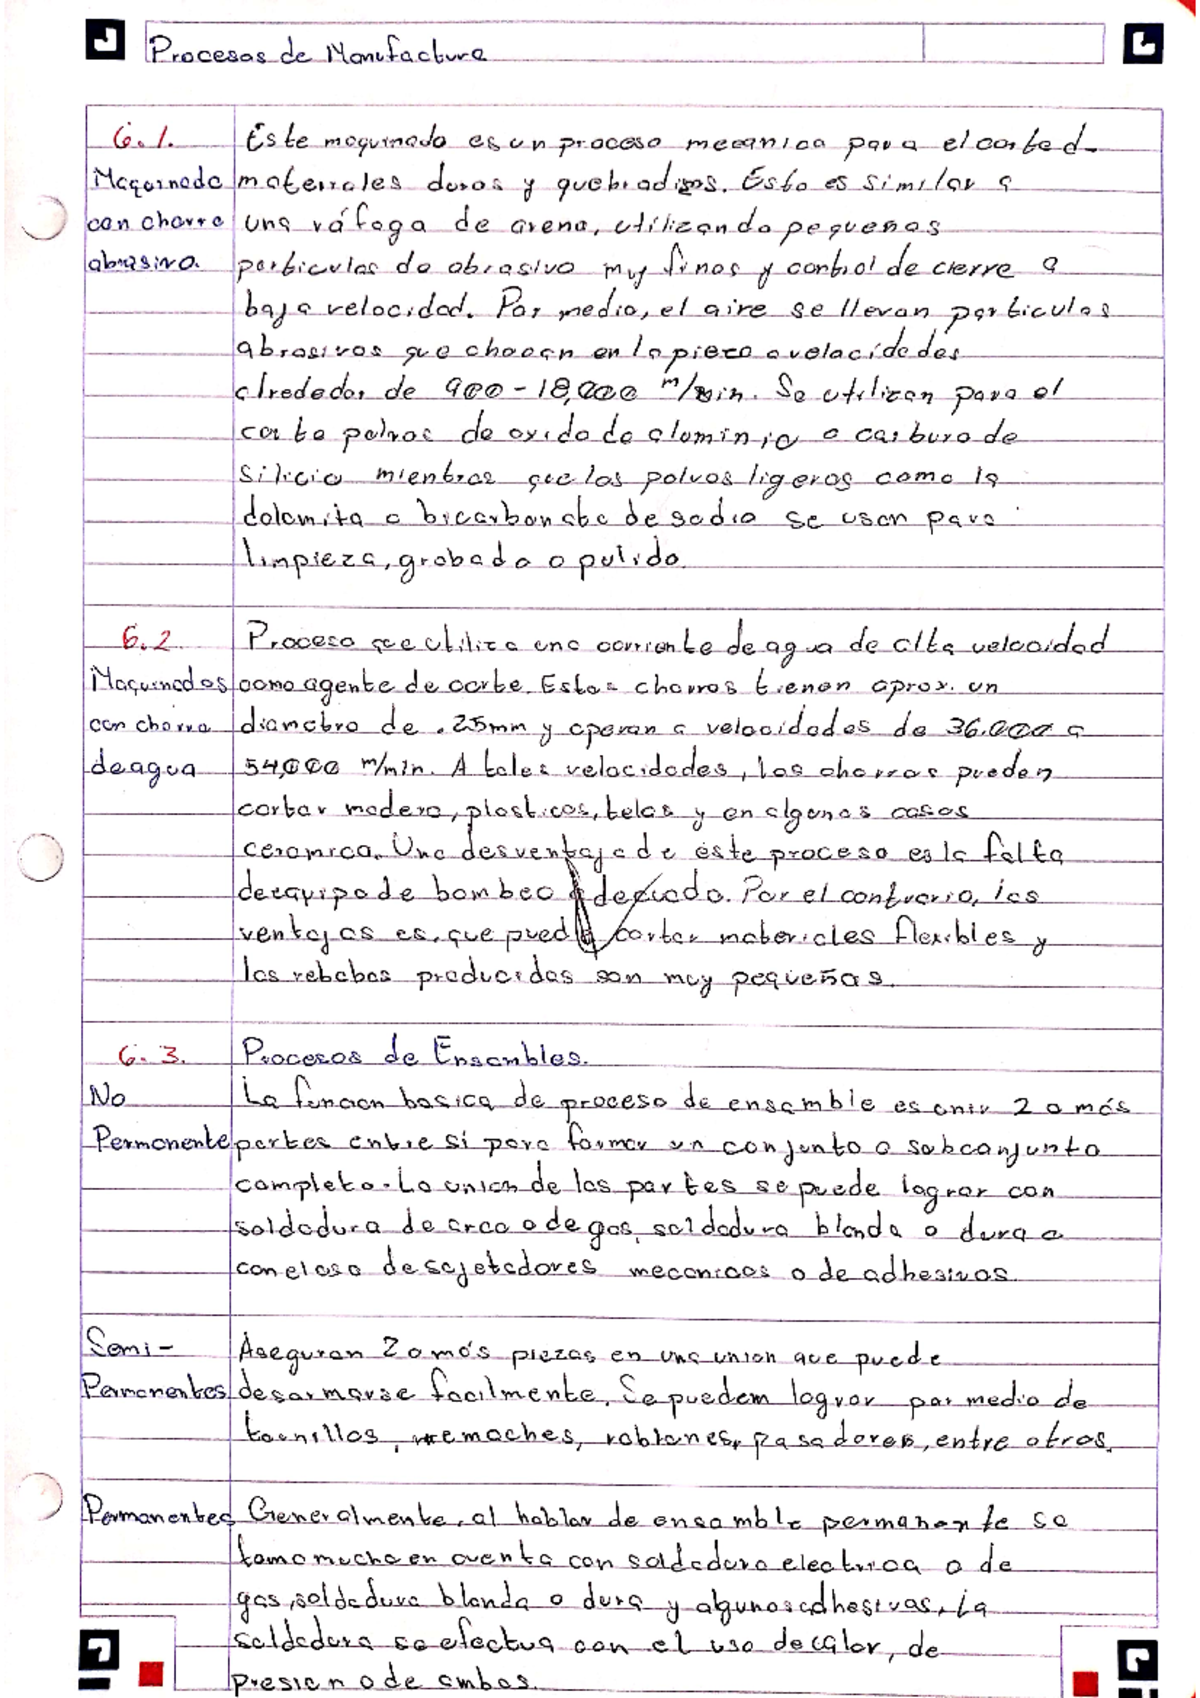 Procesos de Manufactura
6.1.
Maquinado
con chorro
abrasivo.
Este maquinado es un proceso mecanico para el corte d
materiales duros y quebradizos. Esto es similar a
una ráfaga de arena, utilizando pequeñas
particulas de abrasivo muy finos y control de cierre a
baja velocidad. Por medio, el aire se llevan particulas
abrasivos que chocan en la pieza a velocidades
alrededor de 900-18,000 m/min. Se utilizan para el
corte polvos de oxido de aluminio o carburo de
silicio mientras que los polvos ligeros como la
dolomita o bicarbonato de sodio se usan para
limpieza, grabado o pulido.
6.2.
Maquinados
con chorro
de agua
Proceso que utiliza una corriente de agua de alta velocidad
como agente de corte. Estos chorros tienen aprox. un
diametro de .25mm y operan a velocidades de 36,000 a
54,000 m/min. A tales velocidades, los chorros pueden
cortar madera, plasticos, telas y en algunos casos
ceramica. Una desventaja de éste proceso es la falta
de equipo de bombeo adecuado. Por el contrario, las
ventajas es, que puede cortar materiales flexibles y
las rebabas producidas son muy pequeñas.
6.3.
Procesos de Ensambles.
No
Permanente
La funcion basica de proceso de ensamble es unir 2 o más
partes entre si para formar un conjunto o subconjunto
completo. La union de las partes se puede lograr con
soldadura de arco o de gas, soldadura blanda o dura o
con el uso de sujetadores mecanicos o de adhesivos.
Semi-
Permanentes
Aseguran 2 o más piezas en una union que puede
desarmarse facilmente. Se puedem lograr por medio de
tornillos, remaches, roblones, pasadores, entre otros.
Permanentes
Generalmente, al hablar de ensamble permanente se
toma mucho en cuenta con soldadura electrica o de
gas, soldadura blanda o dura y algunos adhesivas, la
soldadura se efectua con el uso de calor, de
presion o de ambos.